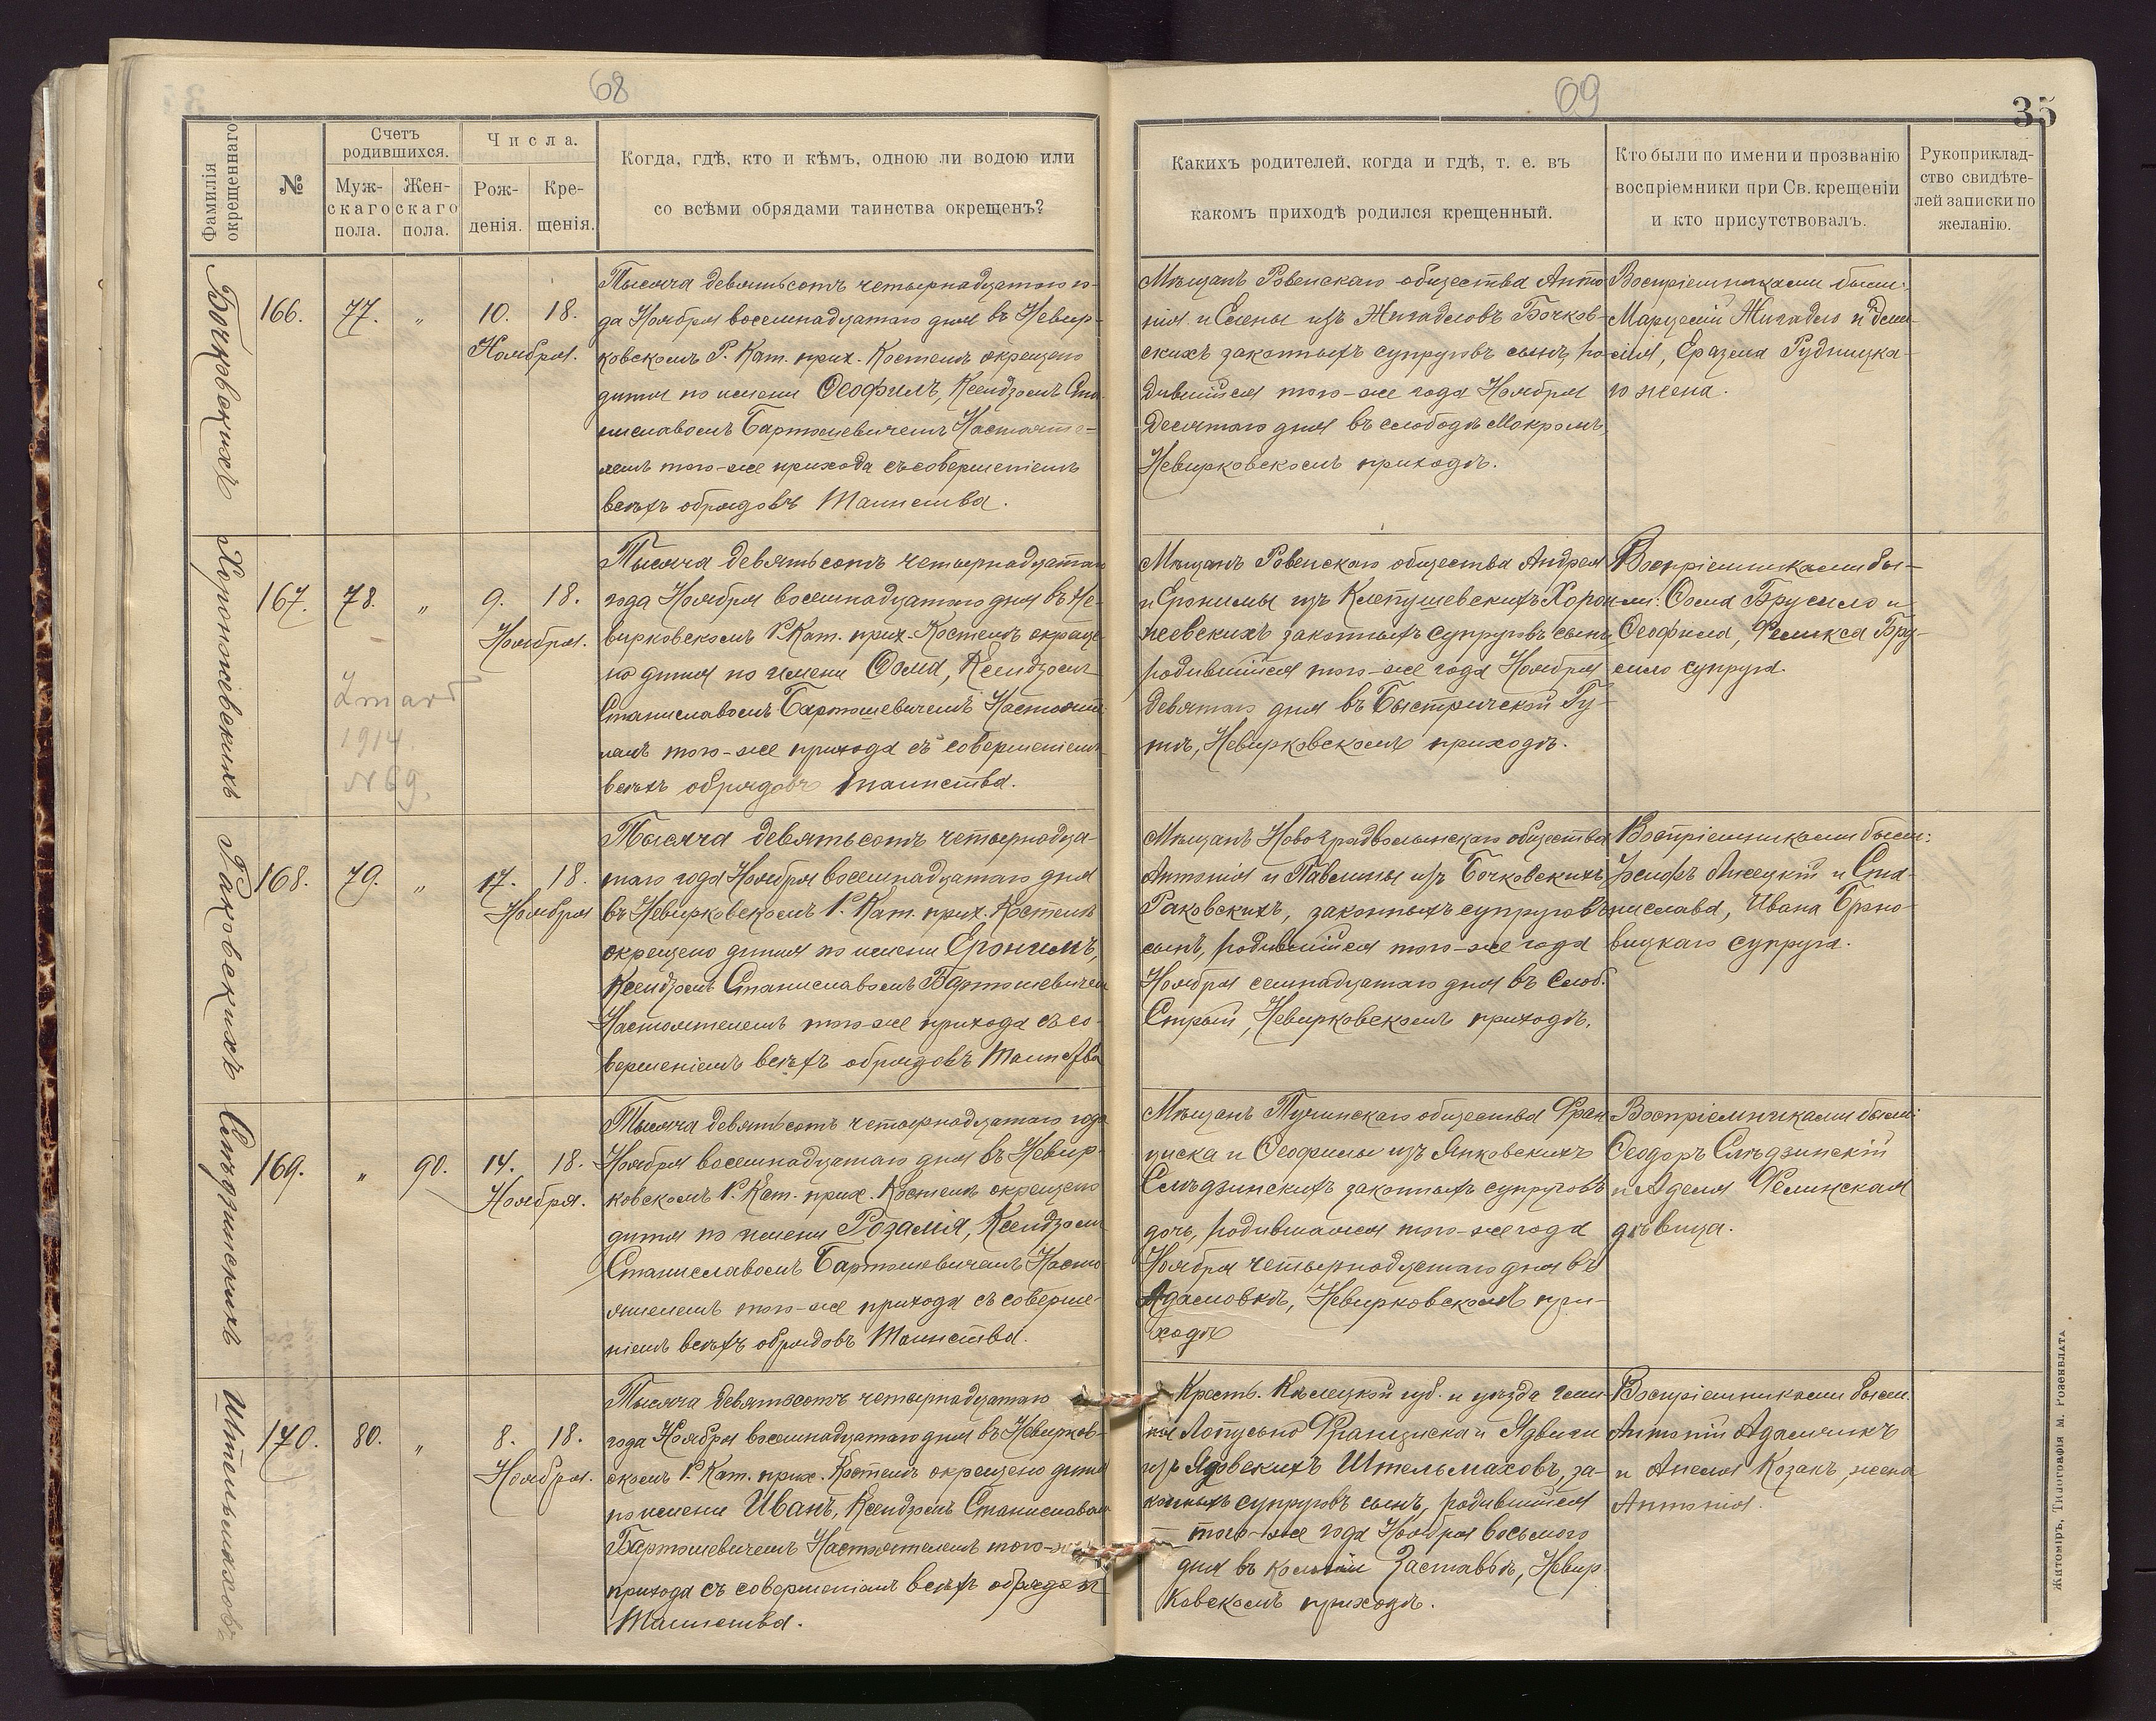 68
Фамилія
окрещеннаго
№
Счетъ
родившихся.
Муж-
скаго
пола.
Жен-
скаго
пола.
Числа.
Рож-
денія.
Кре-
щенія.
Когда, гдѣ, кто и кѣмъ, одною ли водою или
со всѣми обрядами таинства окрещенъ?
69
35
Какихъ родителей, когда и гдѣ, т. е. въ
какомъ приходѣ родился крещенный.
Кто были по имени и прозванію
воспріемники при Св. крещеніи
и кто присутствовалъ.
Рукоприклад-
ство свидѣте-
лей записки по
желанію.
Бочковскихъ
166. 77. „ 10. 18.
Ноября.
Тысяча девятьсотъ четырнадцатаго го-
да Ноября восемнадцатаго дня въ Невир-
ковскомъ Р. Кат. прих. Костелѣ окрещено
дитя по имени Ѳеофилъ, Ксендзомъ Ста-
ниславомъ Бартошевичемъ Настояте-
лемъ того-же прихода съ совершеніемъ
всѣхъ обрядовъ Таинства.
Мѣщанъ Ровенскаго общества Анто
нія и Елены изъ Жигадловъ Бочков-
скихъ законныхъ супруговъ сынъ, ро-
дившійся того-же года Ноября
десятаго дня въ слободѣ Мокромъ,
Невирковскомъ приходѣ.
Воспріемниками были:
Марцелій Жигадло и
Еразма Рудницка-
го жена.
Хороножевскихъ
167. 78. „ 9. 18.
Ноября.
Zmarł
1914.
N 69.
Тысяча девятьсотъ четырнадцатаго
года Ноября восемнадцатаго дня въ Не-
вирковскомъ Р. Кат. прих. Костелѣ окреще-
но дитя по имени Ѳома, Ксендзомъ
Станиславомъ Бартошевичемъ Настояте-
лемъ того-же прихода съ совершеніемъ
всѣхъ обрядовъ таинства.
Мѣщанъ Ровенскаго общества Андрея
и Еронимы изъ Клепушевскихъ Хороно-
жевскихъ законныхъ супруговъ сынъ
родившійся того-же года Ноября
девятаго дня въ Быстричской Гу-
тѣ, Невирковскомъ приходѣ.
Воспріемниками бы-
ли: Ѳома Брусило и
Ѳеофила, Феликса Бру-
сило супруга.
Раковскихъ
168. 79. „ 17. 18.
Ноября
Тысяча девятьсотъ четырнадца-
таго года Ноября восемнадцатаго дня
въ Невирковскомъ Р. Кат. прих. Костелѣ
окрещено дитя по имени Еронимъ,
Ксендзомъ Станиславомъ Бартошевичем
Настоятелемъ того-же прихода съ со-
вершеніемъ всѣхъ обрядовъ Таинства
Мѣщанъ Новоградволынскаго общества
Антонія и Павлины изъ Бочковскихъ
Раковскихъ, законныхъ супруговъ
сынъ, родившійся того-же года
Ноября семнадцатаго дня въ Слоб.
Стрый, Невирковскомъ приходѣ.
Воспріемниками были:
Іосифъ Лисецкій и Ста-
нислава, Ивана Брано-
вицкаго супруга.
Слѣдзинскихъ
169. „ 90. 14. 18.
Ноября.
Тысяча девятьсотъ четырнадцатаго года
Ноября восемнадцатаго дня въ Невир-
ковскомъ Р. Кат. прих. Костелѣ окрещено
дитя по имени Розалія, Ксендзомъ
Станиславомъ Бартошевичемъ Насто-
ятелемъ того-же прихода съ соверше-
ніемъ всѣхъ обрядовъ Таинства.
Мѣщанъ Тучинскаго общества Фран
циска и Ѳеофилы изъ Янковскихъ
Слѣдзинскихъ законныхъ супруговъ
дочь, родившаяся того-же года
Ноября четырнадцатаго дня въ
Адамовкѣ, Невирковскомъ при-
ходѣ
Воспріемниками были:
Ѳеодоръ Слѣдзинскій
и Аделя Фелинская
дѣвица.
Штельмаховъ
170. 80. „ 8. 18.
Ноября.
Тысяча девятьсотъ четырнадцатаго
года Ноября восемнадцатаго дня въ Невирков-
скомъ Р. Кат. прих. Костелѣ окрещено дитя
по имени Иванъ, Ксендзомъ Станиславомъ
Бартошевичемъ Настоятелемъ того-же
прихода съ совершеніемъ всѣхъ обрядовъ
Таинства.
Крест. Кѣлецкой губ. и уѣзда гми-
ны Лопушно Франциска и Ядвиги
изъ Ядовскихъ Штельмаховъ, за-
конныхъ супруговъ сынъ, родившійся
того-же года Ноября восьмого
дня въ колоніи Заставьѣ, Невир
ковскомъ приходѣ.
Воспріемниками были:
Антоній Адамчикъ
и Анеля Козакъ, жена
Антонія.
Житоміръ, Типографія М. РОЗЕНБЛАТА